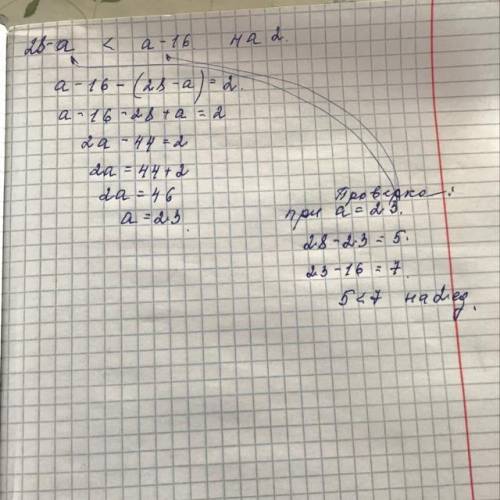 28-a < a-16 на 2.
a-16-(28-a)=2.
a-16-28+a=2
2a-44=2
2a=44+2
2a=46
a=23.
Проверка:
при a=23.
28-23=5.
23-16=7.
5<7 на 2 ед.